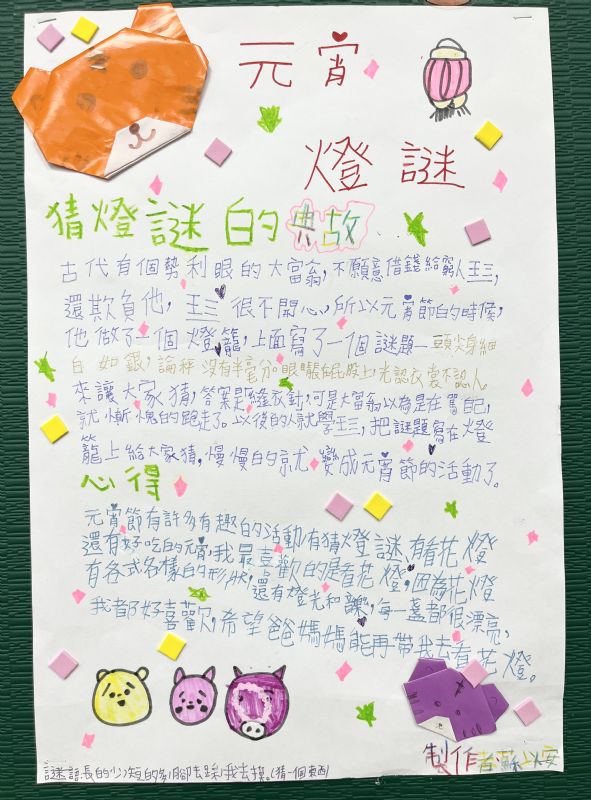 元宵
燈謎
猜燈謎的典故
古代有個勢利眼的大富翁,不願意借錢給窮人王三,
還欺負他,王三很不開心,所以元宵節的時候,
他做了一個燈籠,上面寫了一個謎題—頭尖身細
白如銀,論秤沒有半毫分。眼睛長在屁股上,光認衣裳不認人。
來讓大家猜,答案是縫衣針,可是大富翁以為是在罵自己,
就慚愧的跑走了。以後的人就學王三,把謎題寫在燈
籠上給大家猜,慢慢的就變成元宵節的活動了。
心得
元宵節有許多有趣的活動,有猜燈謎、有看花燈
還有好吃的元宵,我最喜歡的是看花燈,因為花燈
有各式各樣的形狀,還有燈光和音樂,每一盞都很漂亮,
我都好喜歡,希望爸媽媽能再帶我去看花燈。
制作者
謎語:長的少,短的多,腳去踩,我去摸。(猜一個東西)